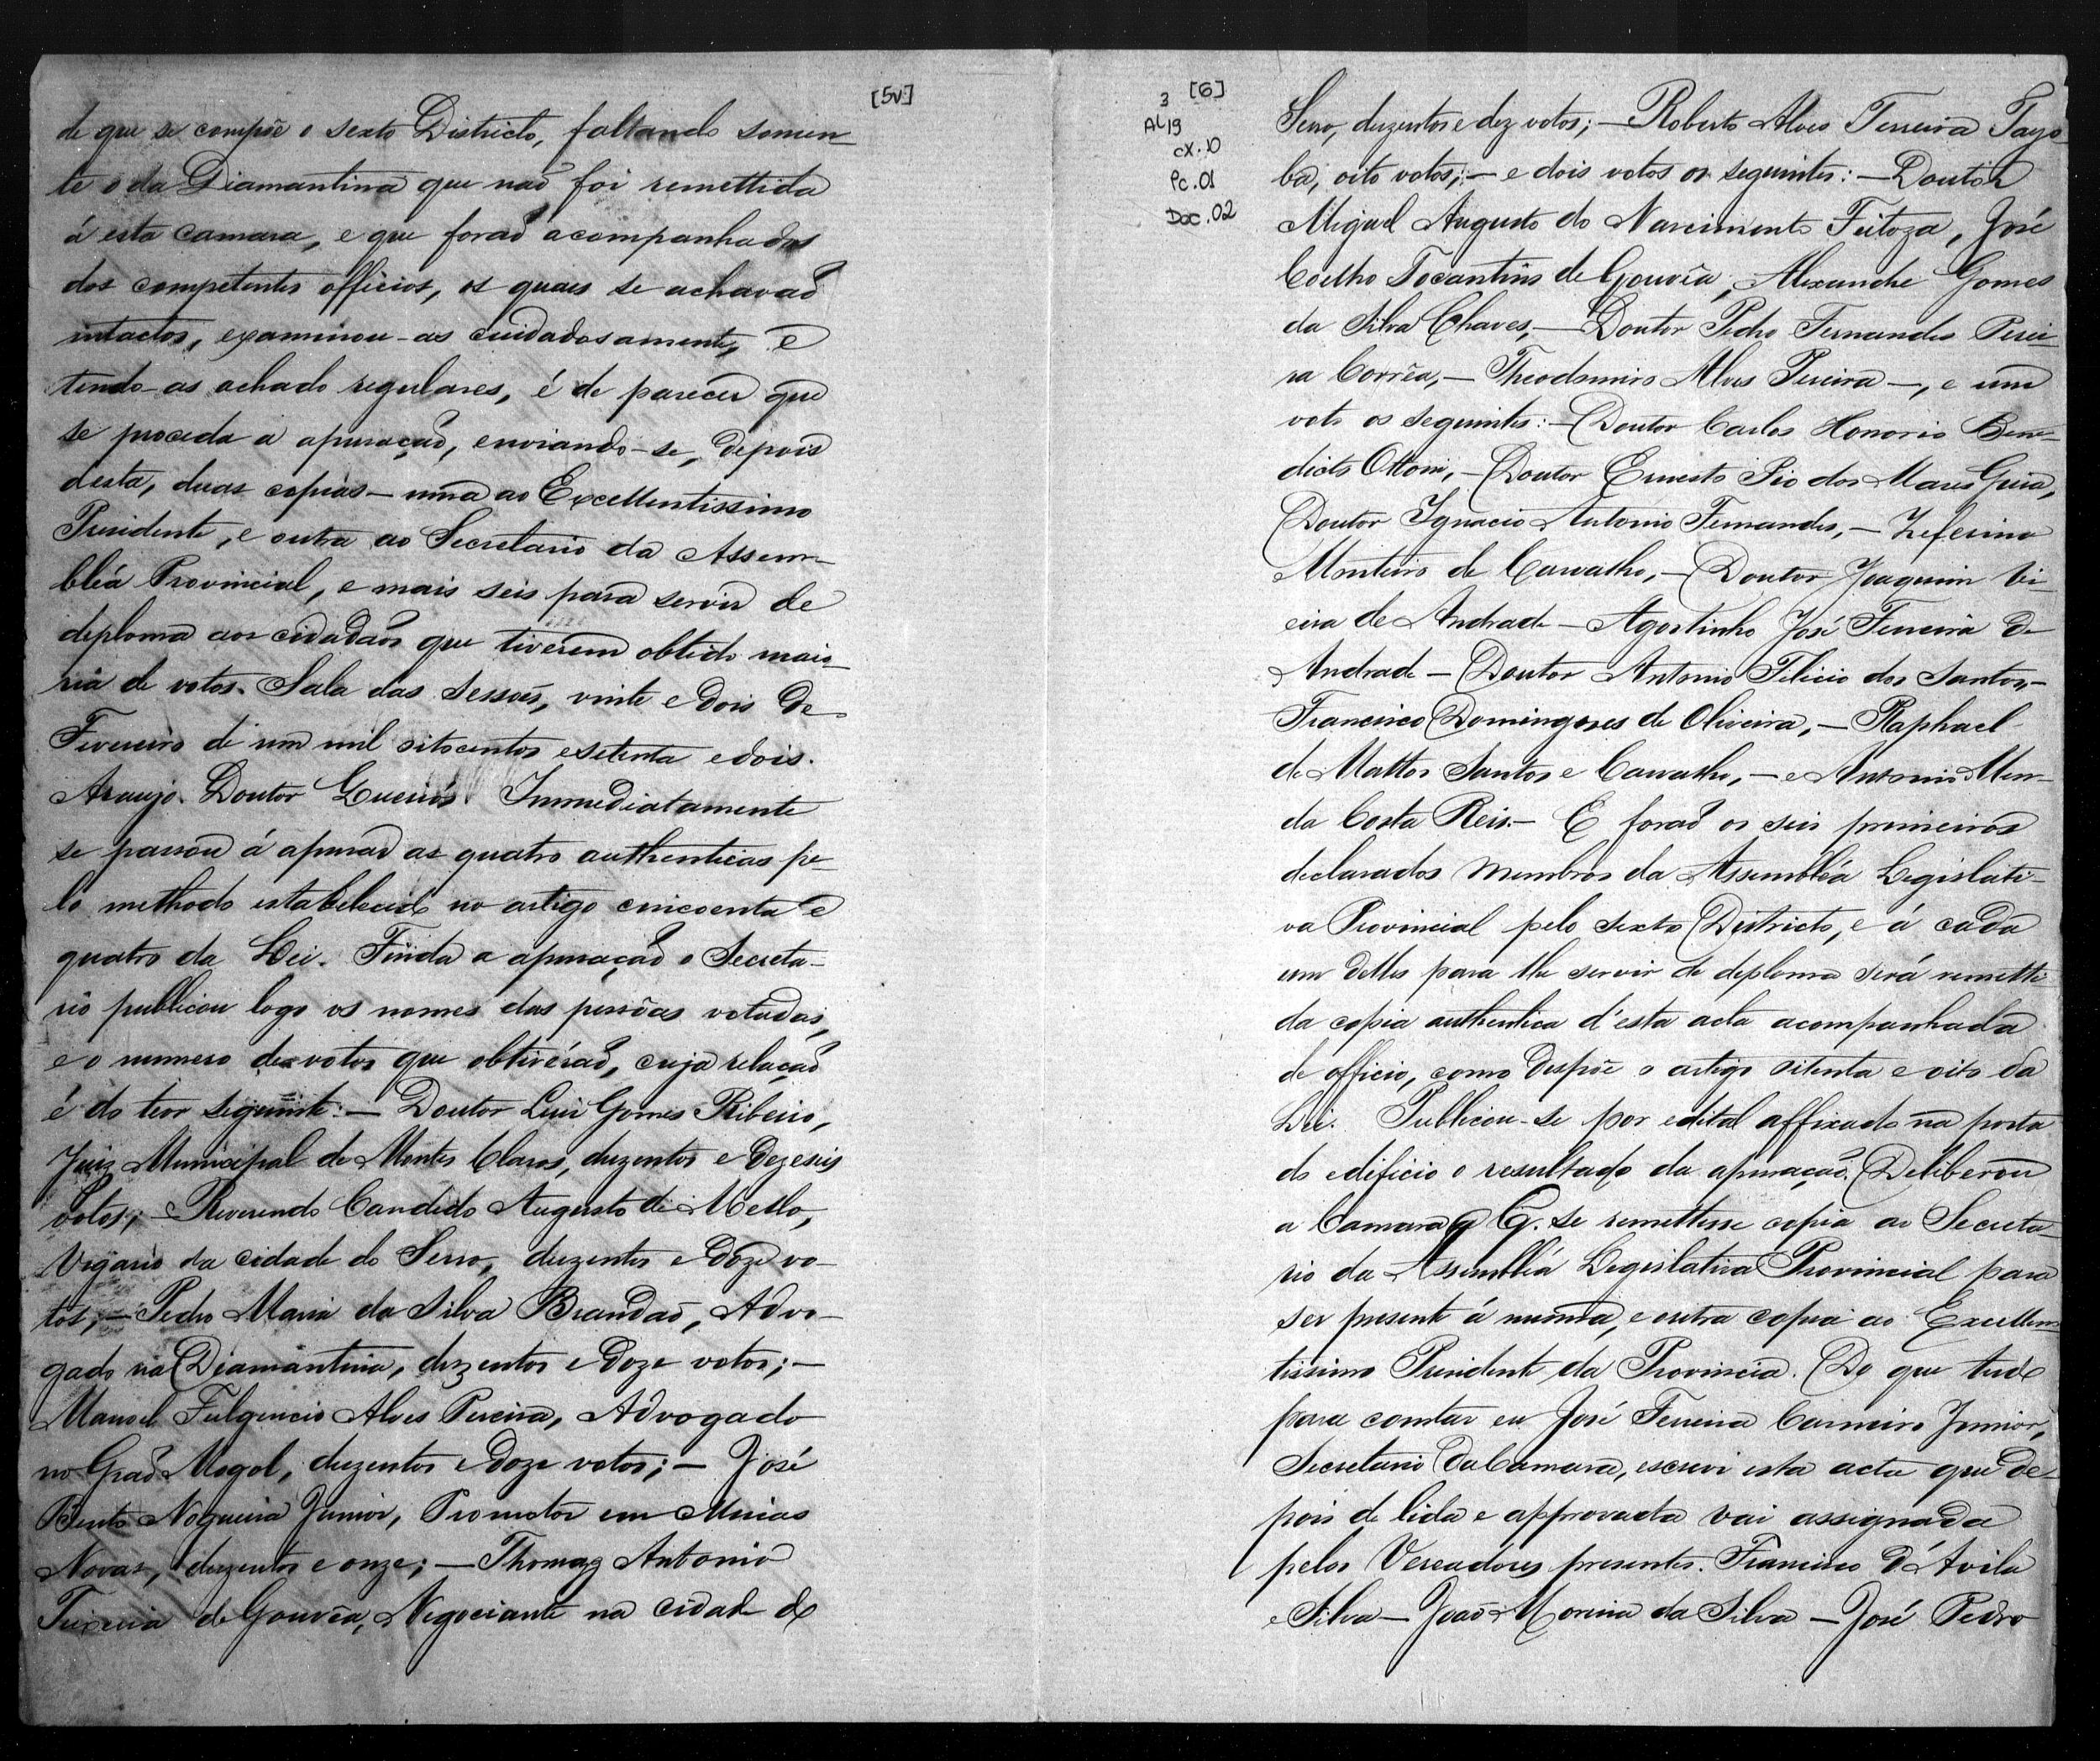 [5v]
de que se compõe o sexto Districto, faltando somen-
te o da Diamantina que naõ foi remettida
á esta Camara, e que foraõ acompanhadas
dos competentes officios, os quaes se achavaõ
intactos, examinou-as cuidadosamente, e
tendo-as achado regulares, é de parecer que
se proceda a apuraçaõ, enviando-se, depois
desta, duas copias – uma ao Excellentissimo
Presidente, e outra ao Secretario da Assem-
bléa Provincial, e mais seis para servir de
diploma aos cidadaõs que tiverem obtido maio-
ria de votos. Sala das sessoẽs, vinte e dois de
Fevereiro de um mil oitocentos e setenta e dois.
Araujo. Doutor Queirós. Immediatamente
se passou á apurar as quatro authenticas pe-
lo methodo estabelecido no artigo cincoenta e
quatro da Lei. Finda a apuraçaõ o Secreta-
rio publicou logo os nomes das pessôas votadas,
e o numero de votos que obtiveraõ, cuja relaçaõ
é do teor seguinte: – Doutor Luis Gomes Ribeiro,
Juiz Municipal de Montes Claros, duzentos e dezeseis
votos; – Reverendo Candido Augusto de Mello,
Vigario da cidade do Serro, duzentos e doze vo-
tos; – Pedro Maria da Silva Brandaõ, Advo-
gado na Diamantina, duzentos e doze votos; –
Manoel Fulgencio Alves Pereira, Advogado
no Graõ Mogol, duzentos e doze votos; – José
Bento Nogueira Junior, Promotor em Minas
Novas, duzentos e onze; – Thomaz Antonio
Teixeira de Gouvêa, Negociante na cidade do
[6]
3
Al 19
cx. 10
Pc. 01
Doc. 02
Serro, duzentos e dez votos; – Roberto Alves Ferreira Tayo-
ba, oito votos; – e dois votos os seguintes: – Doutor
Miguel Augusto do Nascimento Feitoza, José
Coelho Tocantins de Gouvêa, Alexandre Gomes
da Silva Chaves, – Doutor Pedro Fernandes Perei-
ra Corrêa, – Theodomiro Alves Pereira –, e um
voto os seguintes: – Doutor Carlos Honorio Bene-
dicto Ottoni, – Doutor Ernesto Pio dos Mares Guia,
Doutor Ignacio Antonio Fernandes, – Zeferino
Monteiro de Carvalho, – Doutor Joaquim Vi-
eira de Andrade – Agostinho José Ferreira de
Andrade – Doutor Antonio Felicio dos Santos –
Francisco Domingues de Oliveira, – Raphael
de Mattos Santos e Carvalho, – e Antonio Men-
da Costa Reis. – E foraõ os seis primeiros
declarados membros da Assembléa Legislati-
va Provincial pelo sexto Districto, e á cada
um delles para lhe servir de diploma será remetti-
da copia authentica d'esta acta acompanhada
de officio, como dispõe o artigo oitenta e oito da
Lei. Publicou-se por edital affixado na porta
do edificio o resultado da apuraçaõ. Deliberou
a Camara q se remettesse copia ao Secreta-
rio da Assembléa Legislativa Provincial para
ser presente á mesma, e outra copia ao Excellen-
tissimo Presidente da Provincia. Do que tudo
para constar eu José Ferreira Carneiro Junior,
Secretario da Camara, escrevi esta acta que de-
pois de lida e approvada vai assignada
pelos Vereadores presentes. Francisco d'Avila
e Silva – Joaõ Moreira da Silva – José Pedro